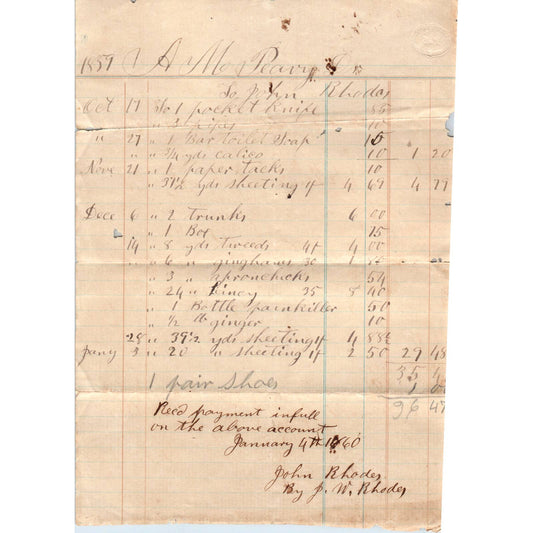 1859 A Mc Peavy Dr
To John Rhodes
Oct 17 To 1 pocket knife 85
" 2 pipes 10
" 27 " 1 Bar toilet Soap 15
" " 3/4 yds calico 10 1 20
Nove 21 " 1 paper tacks 10
" 37 1/2 yds sheeting 4 69 4 79
Dece 6 " 2 trunks 6 00
" 1 Box 15
14 " 8 yds tweeds 4 00
" 6 " ginghams 30 1
" 3 " apronchecks 54
" 24 " 35 8 40
" 1 Bottle painkiller 50
" 1/2 lb ginger 10
28 " 39 1/2 yds sheeting 4
Jany 3 " 20 " sheeting 2 50 29 48
35
1 pair shoes 1
36 47
Recd payment in full
on the above account
January 4th 1860
John Rhodes
By J. W. Rhodes